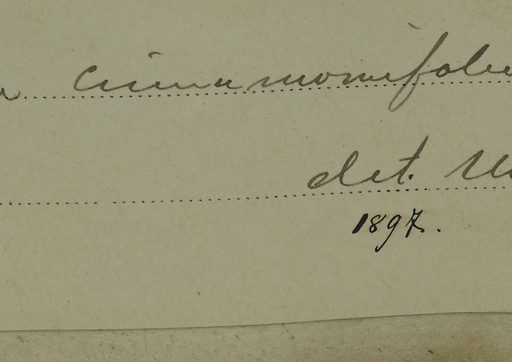 cinnamomifolia
det.
1897.